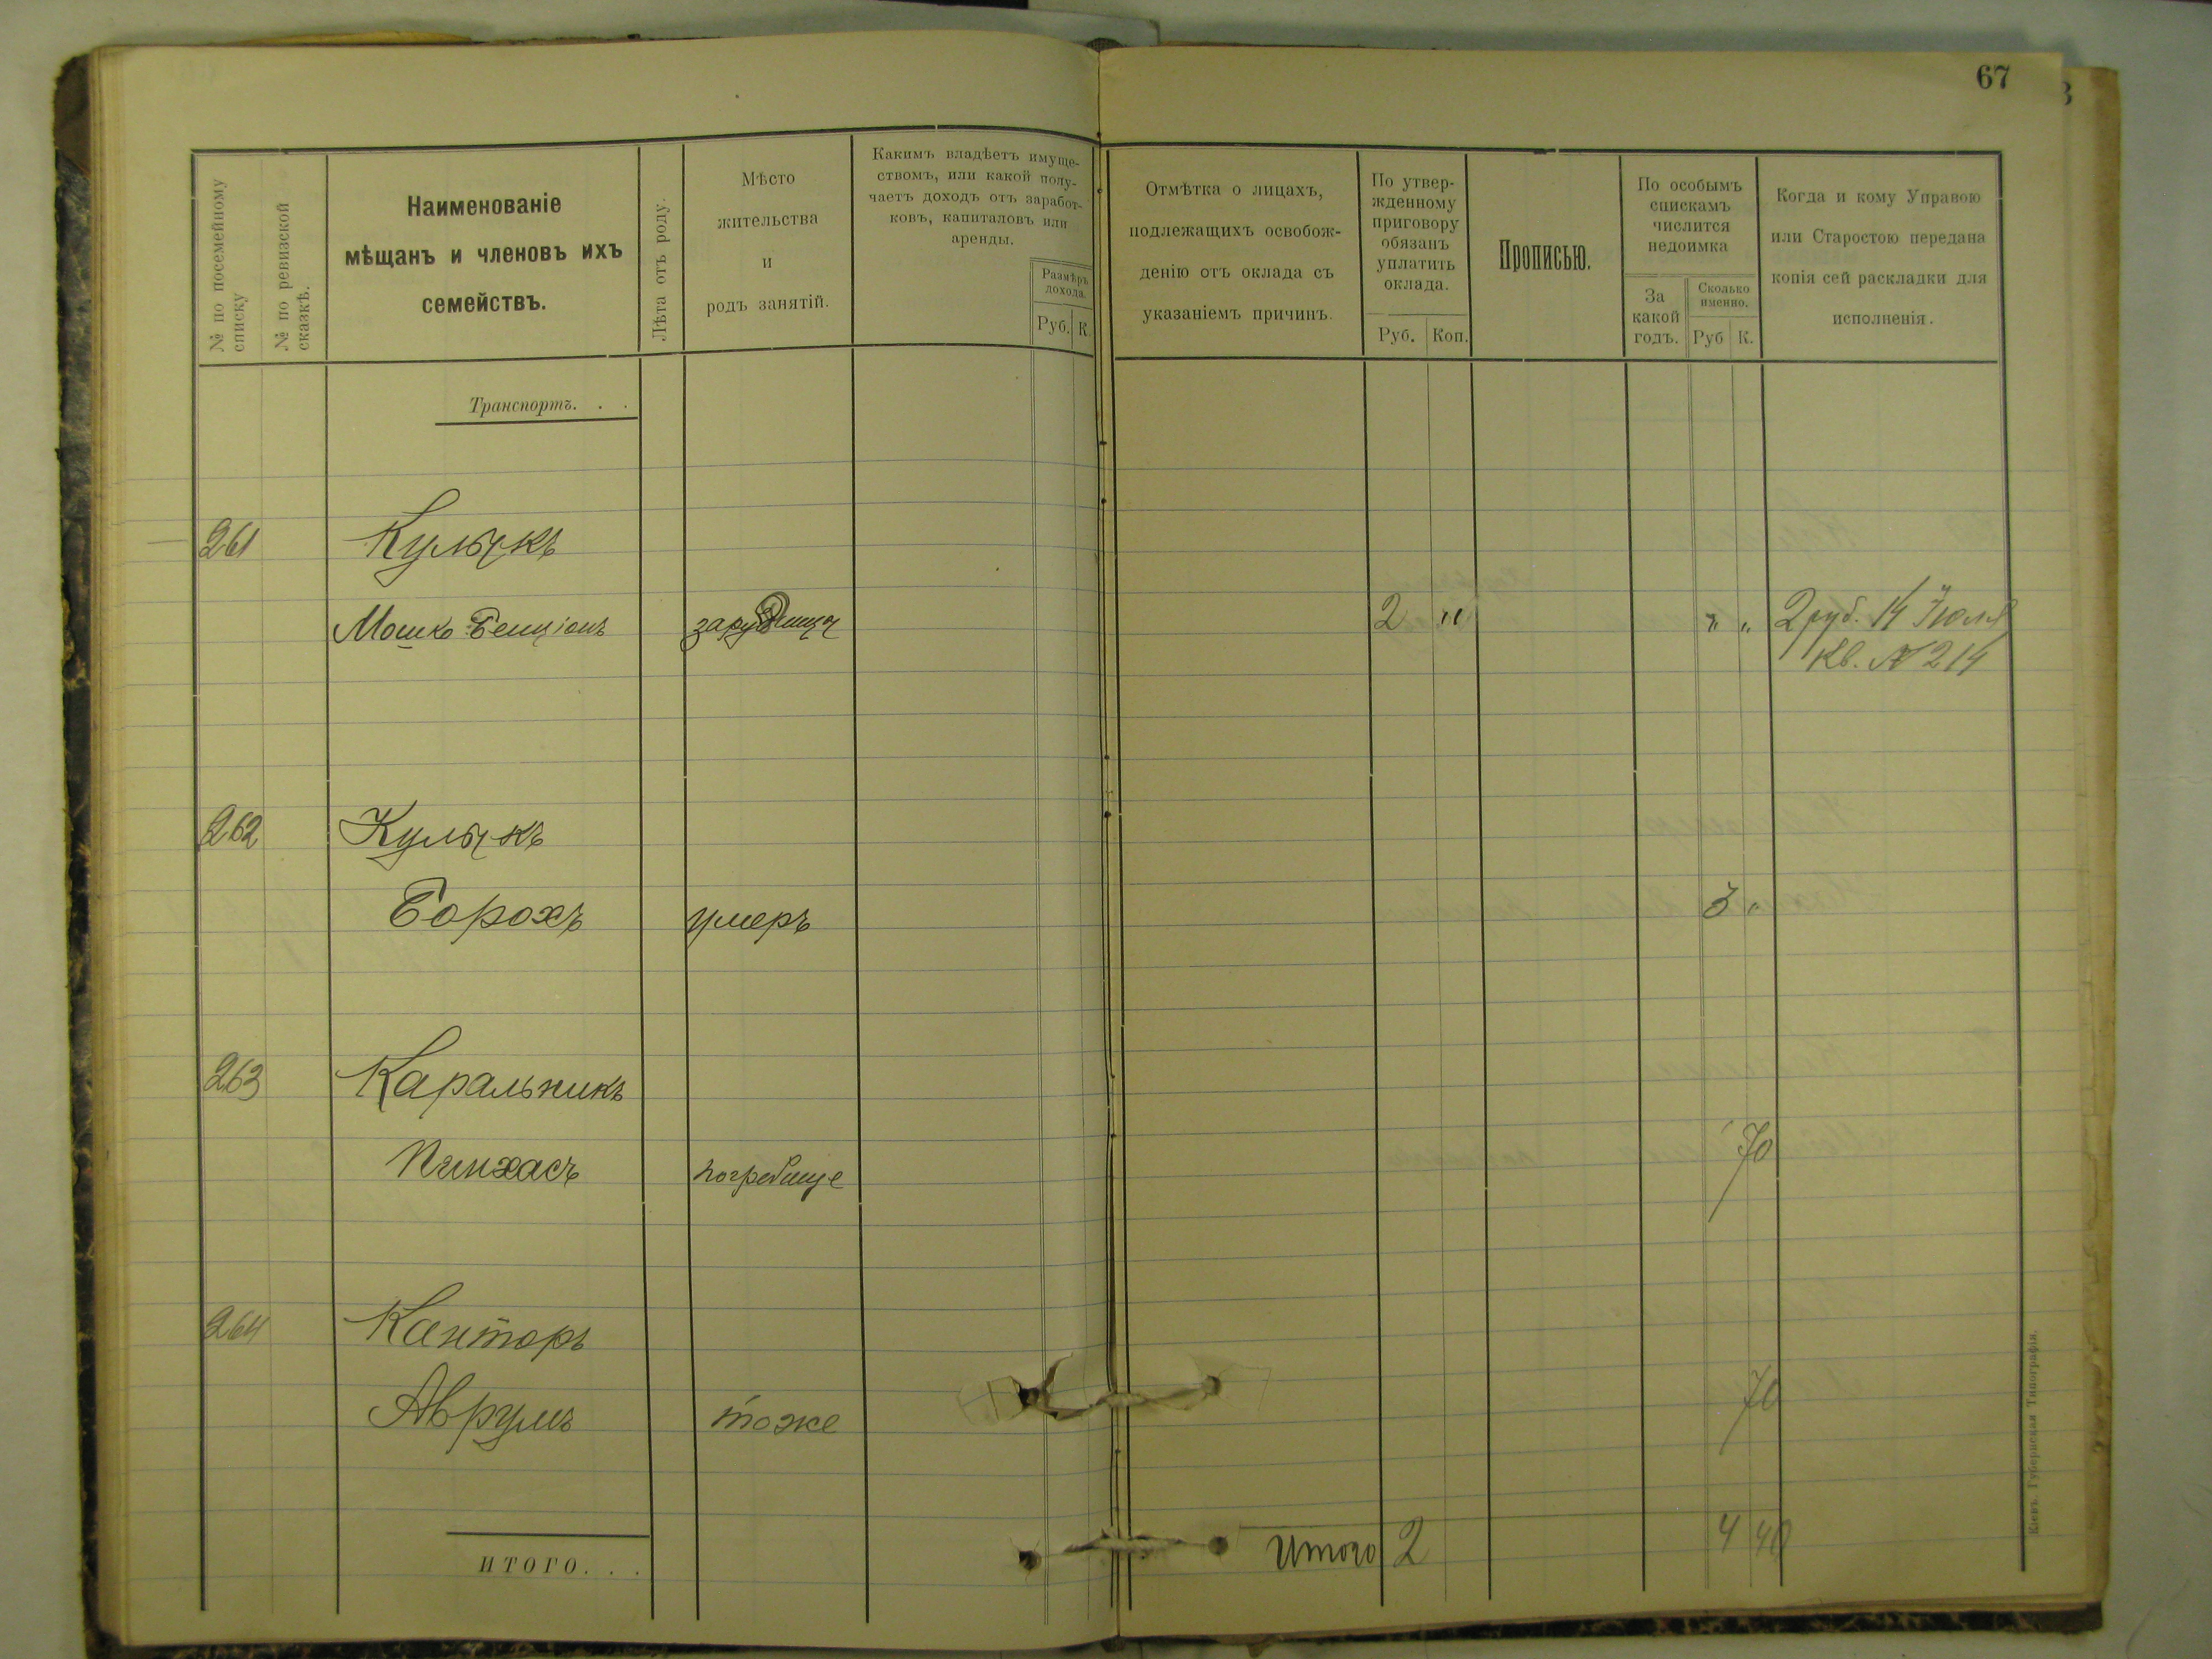 67
№ по посемейному списку
№ по ревизской сказкѣ.
Наименованіе
мѣщанъ и членовъ ихъ
семействъ.
Лѣта отъ роду.
Мѣсто
жительства
и
родъ занятій.
Какимъ владѣетъ имуще-
ствомъ, или какой полу-
чаетъ доходъ отъ заработ-
ковъ, капиталовъ или
аренды.
Размѣръ
дохода.
Руб. К.
Отмѣтка о лицахъ,
подлежащихъ освобож-
денію отъ оклада съ
указаніемъ причинъ.
По утвер-
жденному
приговору
обязанъ
уплатить
оклада.
Руб. Коп.
Прописью.
По особымъ
спискамъ
числится
недоимка
За
какой
годъ.
Сколько
именно.
Руб К.
Когда и кому Управою
или Старостою передана
копія сей раскладки для
исполненія.
Транспортъ. . .
261 Кульчкъ
Мошко Бенціонъ 2 " " " 2 руб. 14 Іюля
Кв. № 214
262 Кульчкъ
Борохъ умеръ 3 "
263 Каральникъ
Пинхасъ погребище 70
264 Канторъ
Аврумъ тоже 70
ИТОГО. . . Итого 2 4 40
Кіевъ. Губернская Типографія.